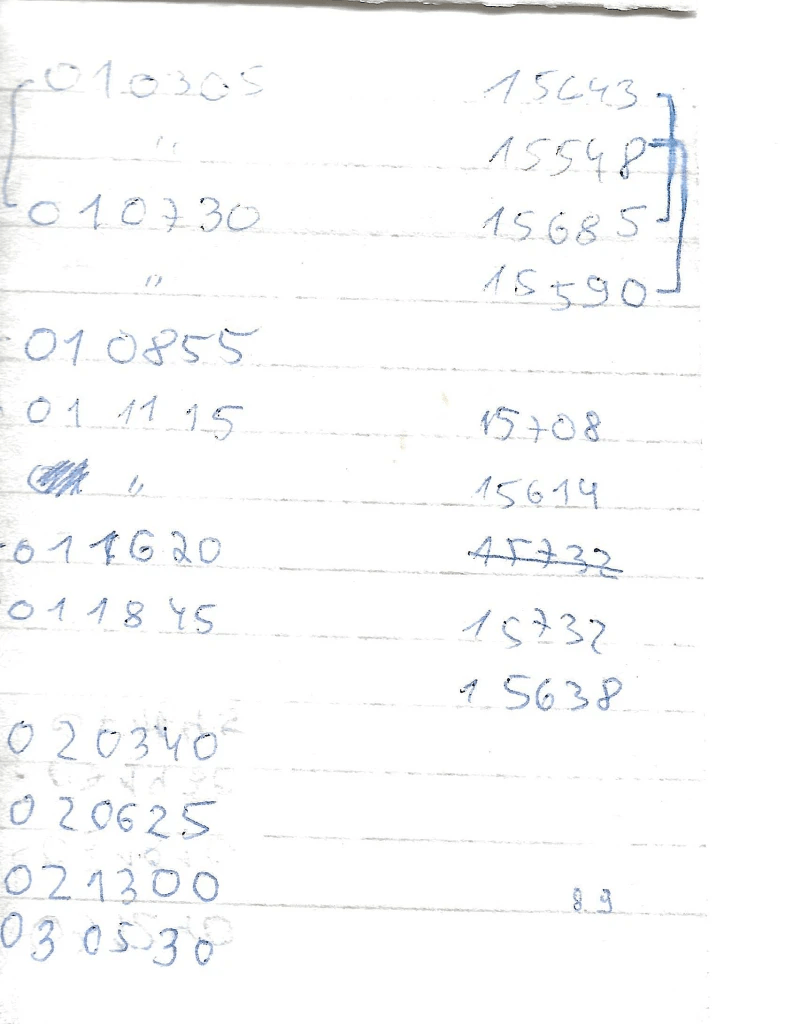 010305 15643
" 15548
010730 15685
" 15590
010855
011115 15708
" 15614
011620 15732
011845 15732
15638
020340
020625
021300 89
030530